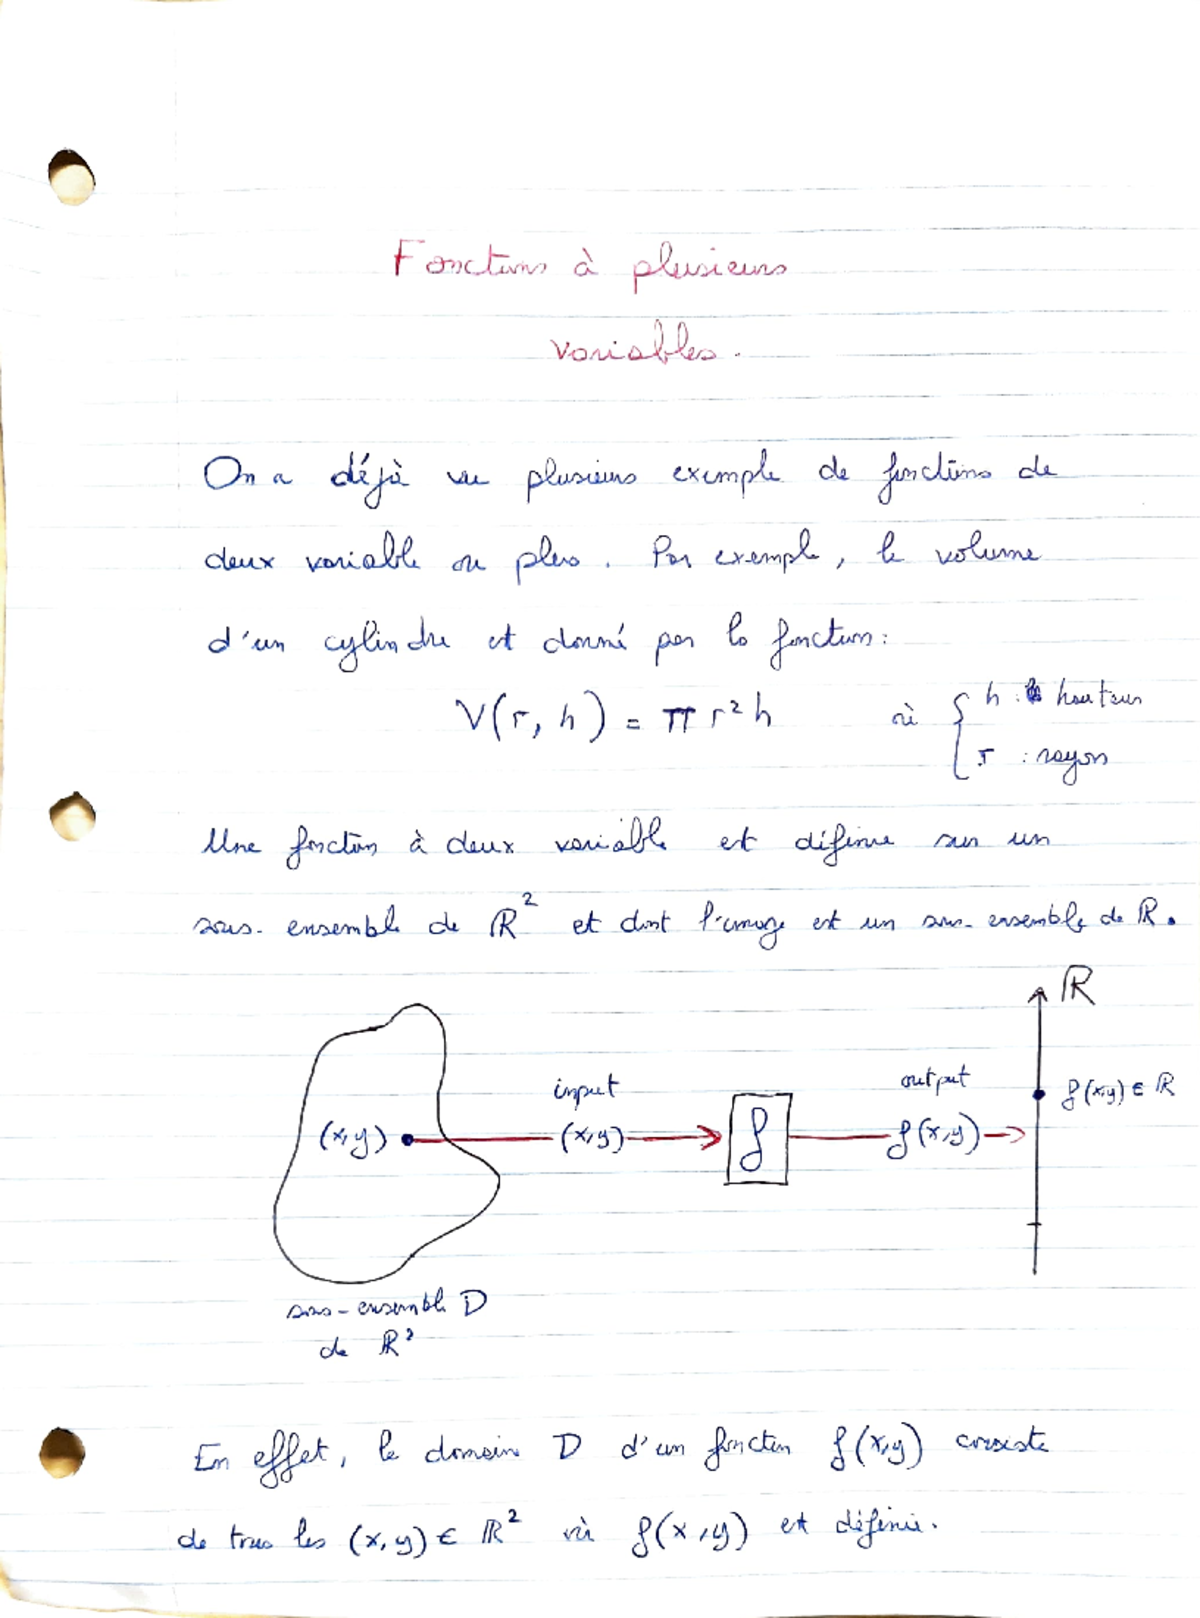 Fonctions à plusieurs
variables.
On a déjà vu plusieurs exemple de fonctions de
deux variable ou plus. Par exemple, le volume
d'un cylindre et donné par la fonction:
V(r, h) = π r² h où { h : hauteur
r : rayon
Une fonction à deux variable est définie sur un
sous-ensemble de ℝ² et dont l'image est un sous-ensemble de ℝ.
ℝ
input output
f(x,y) ∈ ℝ
(x,y) (x,y) f f(x,y)
sous-ensemble D
de ℝ²
En effet, le domain D d'un fonction f(x,y) consiste
de tous les (x,y) ∈ ℝ² où f(x,y) et définie.